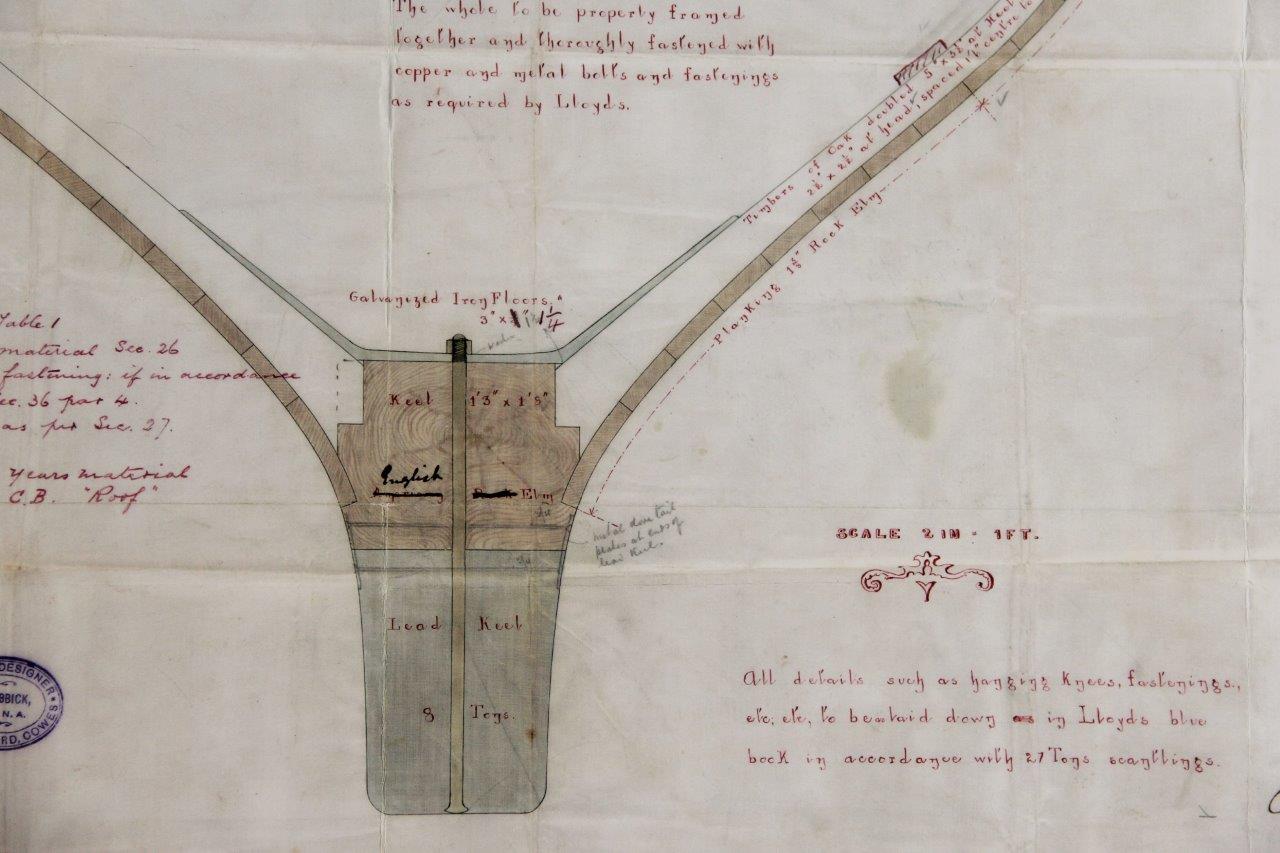 The whole to be properly framed
together and thoroughly fastened with
copper and metal bolts and fastenings
as required by Lloyds.
Timbers of Oak doubled 5" x 3½" at Heel
2½" x 2½" at head, spaced 14" centre to
Planking 1⅝" Rock Elm
Galvanized Iron Floors.
3" x 1¼
Table 1
material Sec. 26
fastening: if in accordance
ec. 36 par 4.
as per Sec. 27.
years material
C.B. "Roof"
Keel 1'3" x 1'8"
English
Elm
metal dove tail
plates at ends of
lead keel.
Lead Keel
8 Tons.
SCALE 2 IN = 1 FT.
DESIGNER
BBICK,
N.A.
RD, COWES
All details such as hanging knees, fastenings,
etc, etc, to be laid down as in Lloyds blue
book in accordance with 27 Tons scantlings.